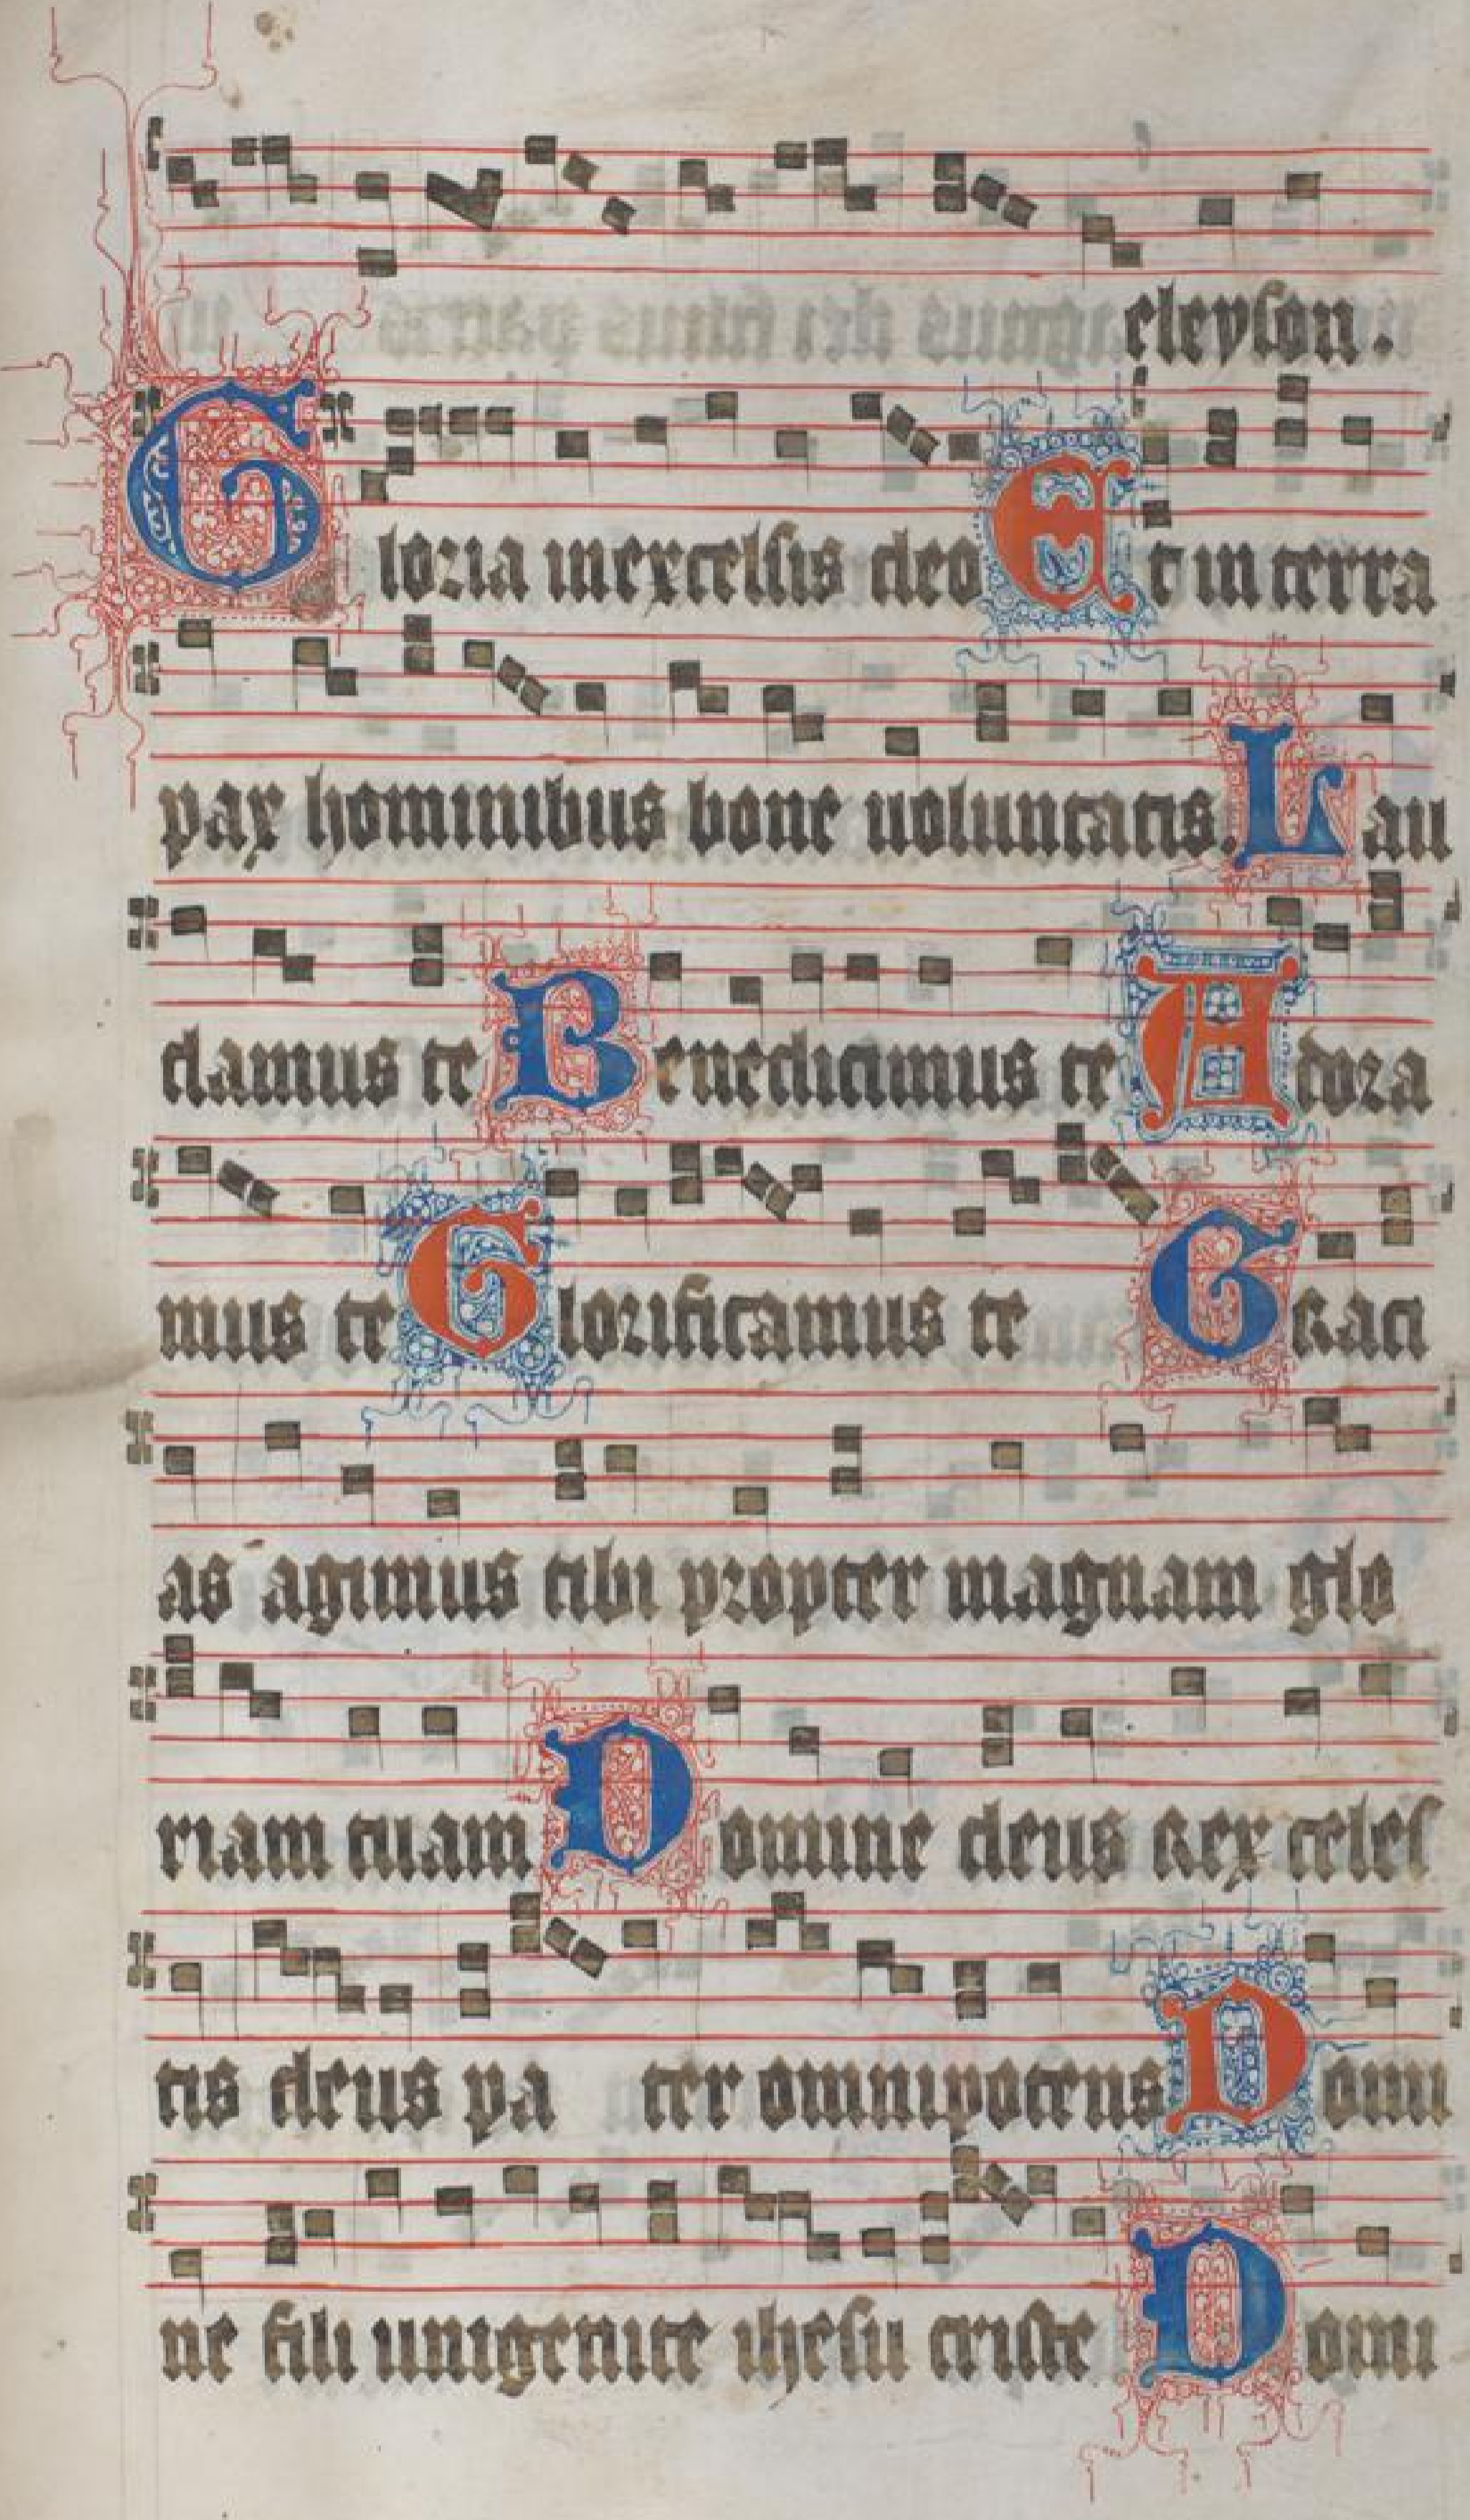 eleyson.
Gloria inexcelsis deo Et in terra
pax hominibus bone uoluntatis. Lau
damus te Benedicimus te Adora
mus te Glorificamus te Graci
as agimus tibi propter magnam glo
riam tuam Domine deus Rex celes
tis deus pa ter omnipotens Domi
ne fili unigenite ihesu criste Domi